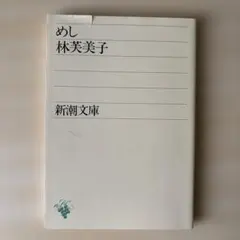 めし
林芙美子
新潮文庫